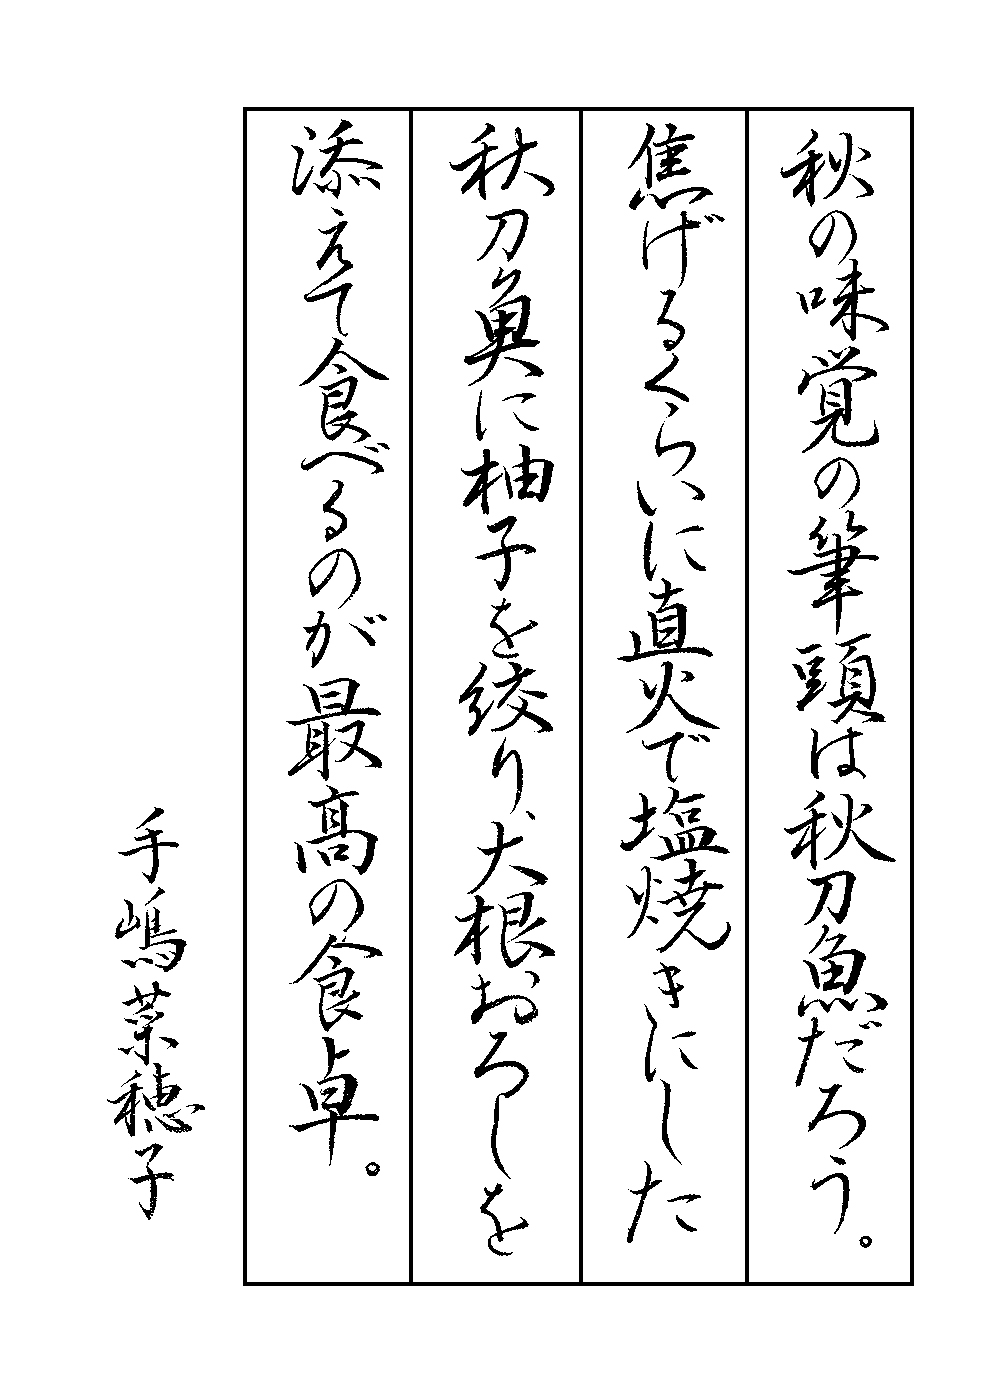 秋の味覚の筆頭は秋刀魚だろう。
焦げるくらいに直火で塩焼きにした
秋刀魚に柚子を絞り、大根おろしを
添えて食べるのが最高の食卓。
手嶋菜穂子